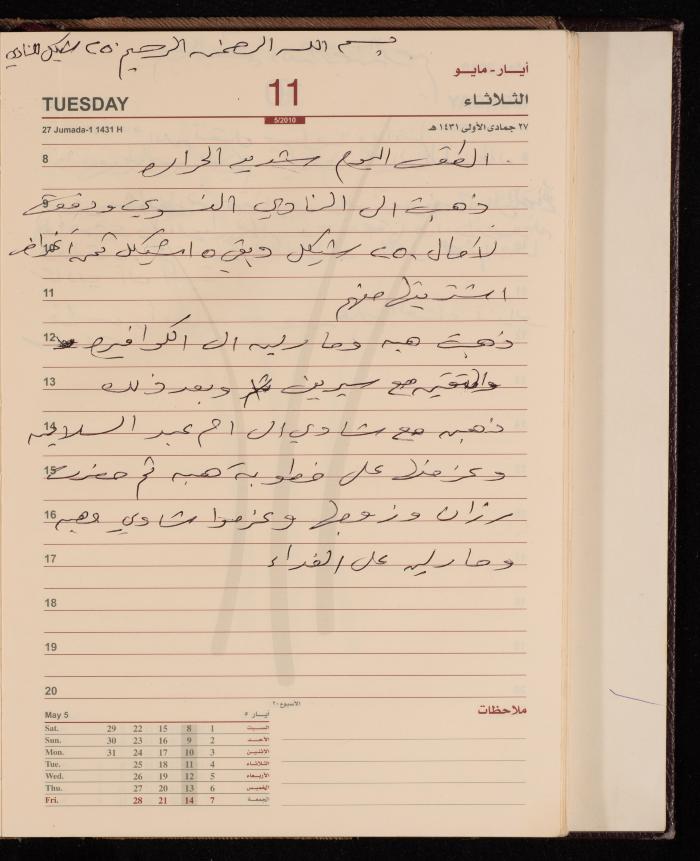 بسم الله الرحمن الرحيم ٢٥٠ شيكل للنادي
أيـار - مايــو
TUESDAY 11 الثلاثاء
5/2010
27 Jumada-1 1431 H ٢٧ جمادى الأولى ١٤٣١ هـ
8 الطقس اليوم شديد الحرارة
9 ذهبت الى النادي النسوي ودفعت
10 لآمال ٢٥٠ شيكل وبقي ١٥ شيكل ثمن أغراض
11 اشتريتها منهم
12 ذهبت هبه ومارلين الى الكوافيره
13 والتقين مع سيرين وبعد ذلك
14 ذهبن مع شادي الى ام عبد السلام
15 وعزمتها على خطوبة هبه ثم حضرت
16 رزان وزوجها وعزموا شادي وهبه
17 ومارلين على الغداء
18
19
20
الأسبوع ٢٠
May 5 أيـار ٥
Sat. 29 22 15 8 1 السبت
Sun. 30 23 16 9 2 الأحد
Mon. 31 24 17 10 3 الاثنين
Tue. 25 18 11 4 الثلاثاء
Wed. 26 19 12 5 الأربعاء
Thu. 27 20 13 6 الخميس
Fri. 28 21 14 7 الجمعة
ملاحظات